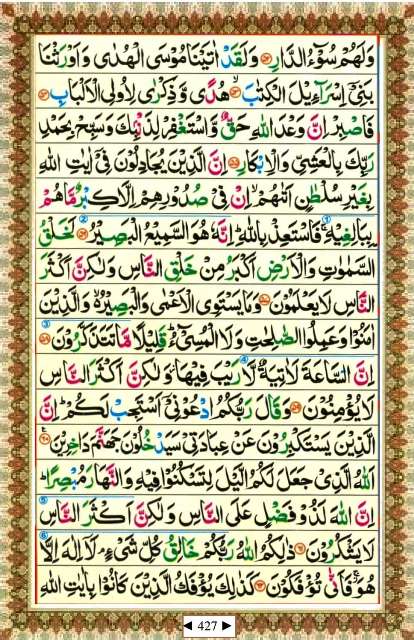 وَلَهُمْ سُوْٓءُ الدَّارِ ﴿۵۲﴾ وَلَقَدْ اٰتَيْنَا مُوْسَى الْهُدٰى وَاَوْرَثْنَا
بَنِيْٓ اِسْرَآءِيْلَ الْكِتٰبَ ﴿۵۳﴾ هُدًى وَّذِكْرٰى لِاُولِى الْاَلْبَابِ ﴿۵۴﴾
فَاصْبِرْ اِنَّ وَعْدَ اللّٰهِ حَقٌّ وَّاسْتَغْفِرْ لِذَنْۢبِكَ وَسَبِّحْ بِحَمْدِ
رَبِّكَ بِالْعَشِىِّ وَالْاِبْكَارِ ﴿۵۵﴾ اِنَّ الَّذِيْنَ يُجَادِلُوْنَ فِيْٓ اٰيٰتِ اللّٰهِ
بِغَيْرِ سُلْطٰنٍ اَتٰىهُمْ ۙ اِنْ فِيْ صُدُوْرِهِمْ اِلَّا كِبْرٌ مَّا هُمْ
بِبَالِغِيْهِ ۚ فَاسْتَعِذْ بِاللّٰهِ ؕ اِنَّهٗ هُوَ السَّمِيْعُ الْبَصِيْرُ ﴿۵۶﴾ لَخَلْقُ
السَّمٰوٰتِ وَالْاَرْضِ اَكْبَرُ مِنْ خَلْقِ النَّاسِ وَلٰكِنَّ اَكْثَرَ
النَّاسِ لَا يَعْلَمُوْنَ ﴿۵۷﴾ وَمَا يَسْتَوِى الْاَعْمٰى وَالْبَصِيْرُ ۙ وَالَّذِيْنَ
اٰمَنُوْا وَعَمِلُوا الصّٰلِحٰتِ وَلَا الْمُسِيْٓءُ ؕ قَلِيْلًا مَّا تَتَذَكَّرُوْنَ ﴿۵۸﴾
اِنَّ السَّاعَةَ لَاٰتِيَةٌ لَّا رَيْبَ فِيْهَا وَلٰكِنَّ اَكْثَرَ النَّاسِ
لَا يُؤْمِنُوْنَ ﴿۵۹﴾ وَقَالَ رَبُّكُمُ ادْعُوْنِيْٓ اَسْتَجِبْ لَكُمْ ؕ اِنَّ
الَّذِيْنَ يَسْتَكْبِرُوْنَ عَنْ عِبَادَتِيْ سَيَدْخُلُوْنَ جَهَنَّمَ دَاخِرِيْنَ ﴿۶۰﴾
اَللّٰهُ الَّذِيْ جَعَلَ لَكُمُ الَّيْلَ لِتَسْكُنُوْا فِيْهِ وَالنَّهَارَ مُبْصِرًا ؕ
اِنَّ اللّٰهَ لَذُوْ فَضْلٍ عَلَى النَّاسِ وَلٰكِنَّ اَكْثَرَ النَّاسِ
لَا يَشْكُرُوْنَ ﴿۶۱﴾ ذٰلِكُمُ اللّٰهُ رَبُّكُمْ خَالِقُ كُلِّ شَىْءٍ ۘ لَآ اِلٰهَ اِلَّا
هُوَ ۫ فَاَنّٰى تُؤْفَكُوْنَ ﴿۶۲﴾ كَذٰلِكَ يُؤْفَكُ الَّذِيْنَ كَانُوْا بِاٰيٰتِ اللّٰهِ
◄ 427 ►